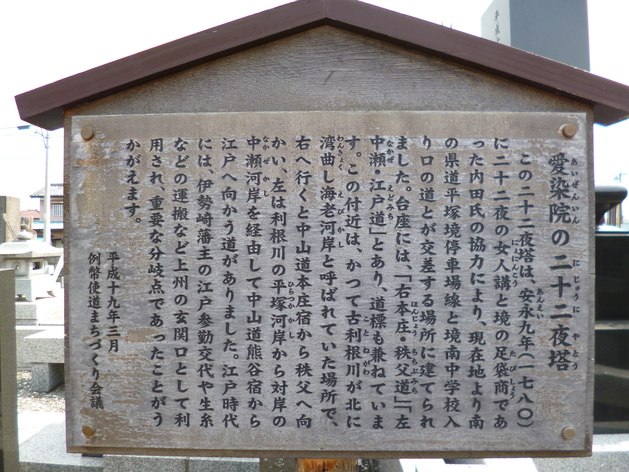 愛染院の二十二夜塔
この二十二夜塔は、安永九年(一七八〇)
に二十二夜の女人講と境の足袋商であ
った内田氏の協力により、現在地より南
の県道平塚境停車場線と境南中学校入
り口の道とが交差する場所に建てられ
ました。台座には、「右本庄・秩父道」「左
中瀬・江戸道」とあり、道標も兼ねていま
す。この付近は、かつて古利根川が北に
湾曲し海老河岸と呼ばれていた場所で、
右へ行くと中山道本庄宿から秩父へ向
かい、左は利根川の平塚河岸から対岸の
中瀬河岸を経由して中山道熊谷宿から
江戸へ向かう道がありました。江戸時代
には、伊勢崎藩主の江戸参勤交代や生糸
などの運搬など上州の玄関口として利
用され、重要な分岐点であったことがう
かがえます。
平成十九年三月
例幣使道まちづくり会議